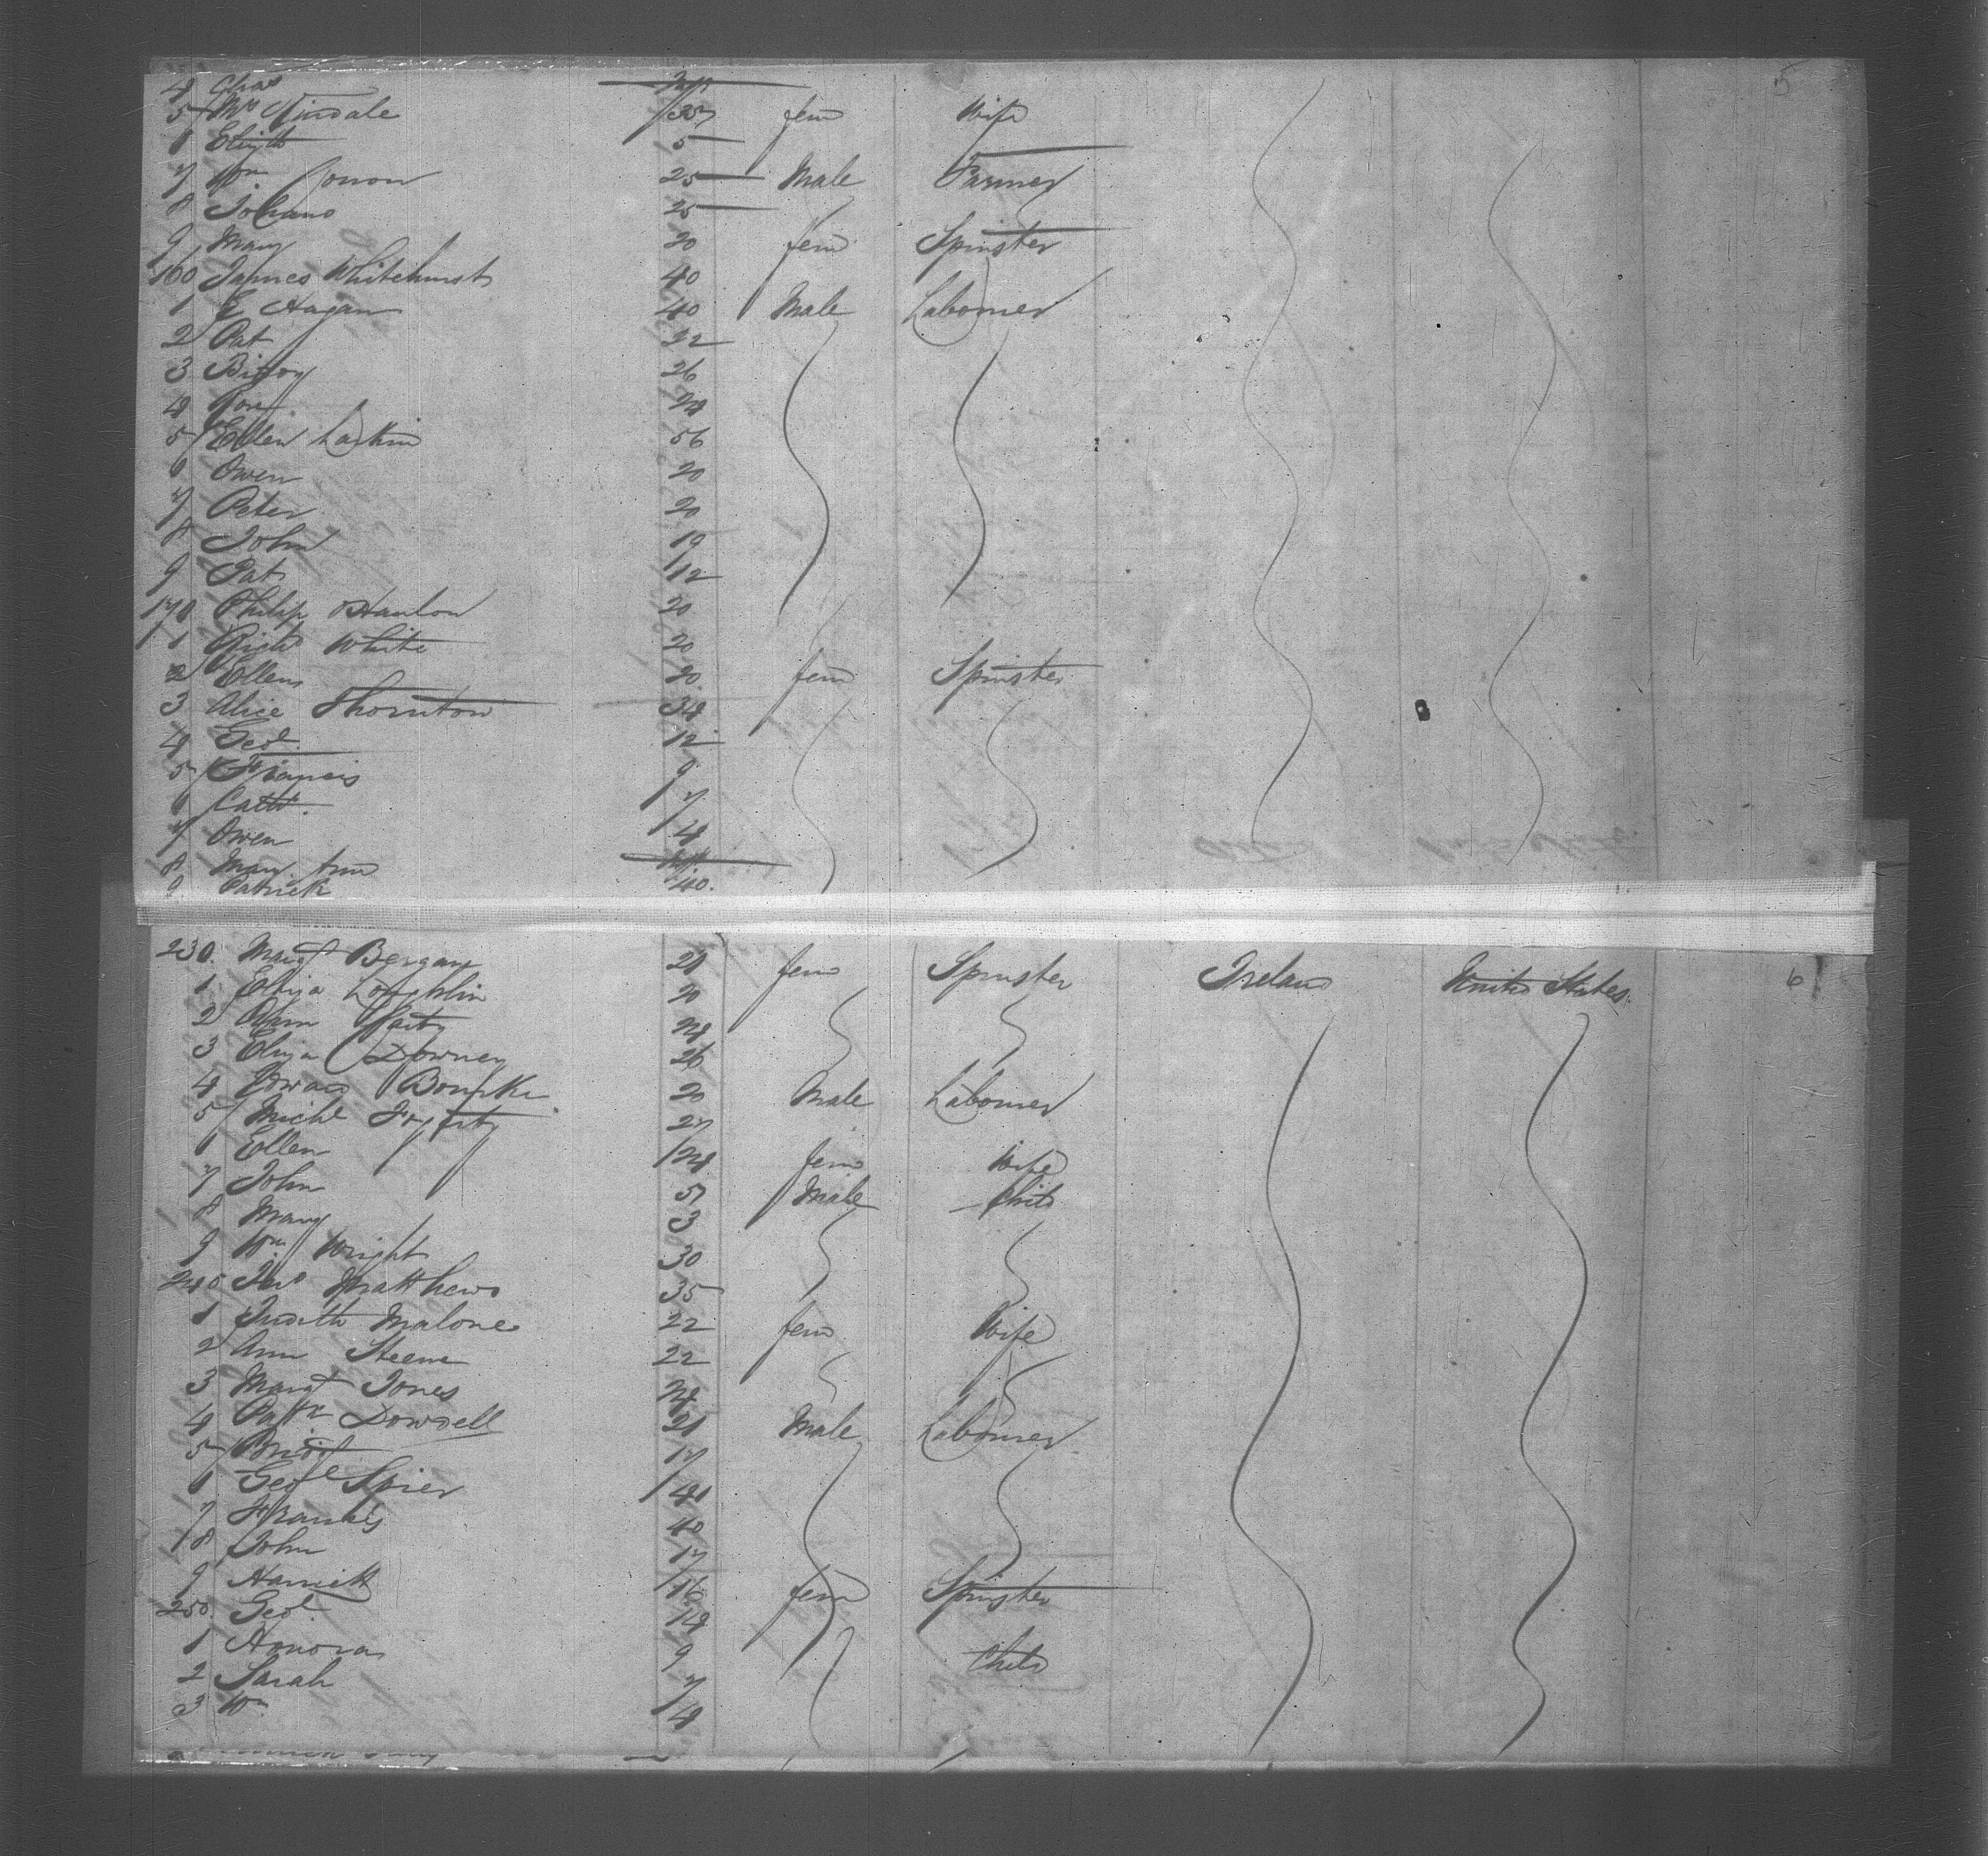 5
4 Chas
5 Mrs Tinsdale 35 fem Wife
6 Elizth 5
7 Wm 25 Male Farmer
8 Johano 25
9 Mary 20 fem Spinster
160 James Whitehurst 40
1 E Hagan 40 Male Labourer
2 Pat 22
3 Biddy 26
4 24
5 Ellen Larkin 56
6 Owen 20
7 Peter 20
8 John 19
9 Pat 12
170 Philip Hanlon 20
1 Richd White 20
2 Ellen 20 fem Spinster
3 Alice Thornton 34
4 Geo. 12
5 Francis 9
6 Cath. 7
7 Owen 4
8 Mary Ann
9 Patrick 40.
230. Margt Bergan 21 fem Spinster Ireland United States 6
1 Eliza Loughlin 20
2 Ann 24
3 Eliza Downey 26
4 Edward Bourke 20 Male Labourer
5 Michl Fogarty 27
6 Ellen 24 fem Wife
7 John 5 Male Child
8 Mary 3
9 Wm Wright 30
240 Jas Matthews 35
1 Judith Malone 22 fem Wife
2 Ann Steene 22
3 Margt Jones 24
4 Patk Dowdell 21 Male Labourer
5 Bridgt 17
6 Geo Spier 41
7 Francis 40
8 John 17
9 Harriett 16 fem Spinster
250. Geo. 14
1 Honora 9 Child
2 Sarah 7
3 Wm 4